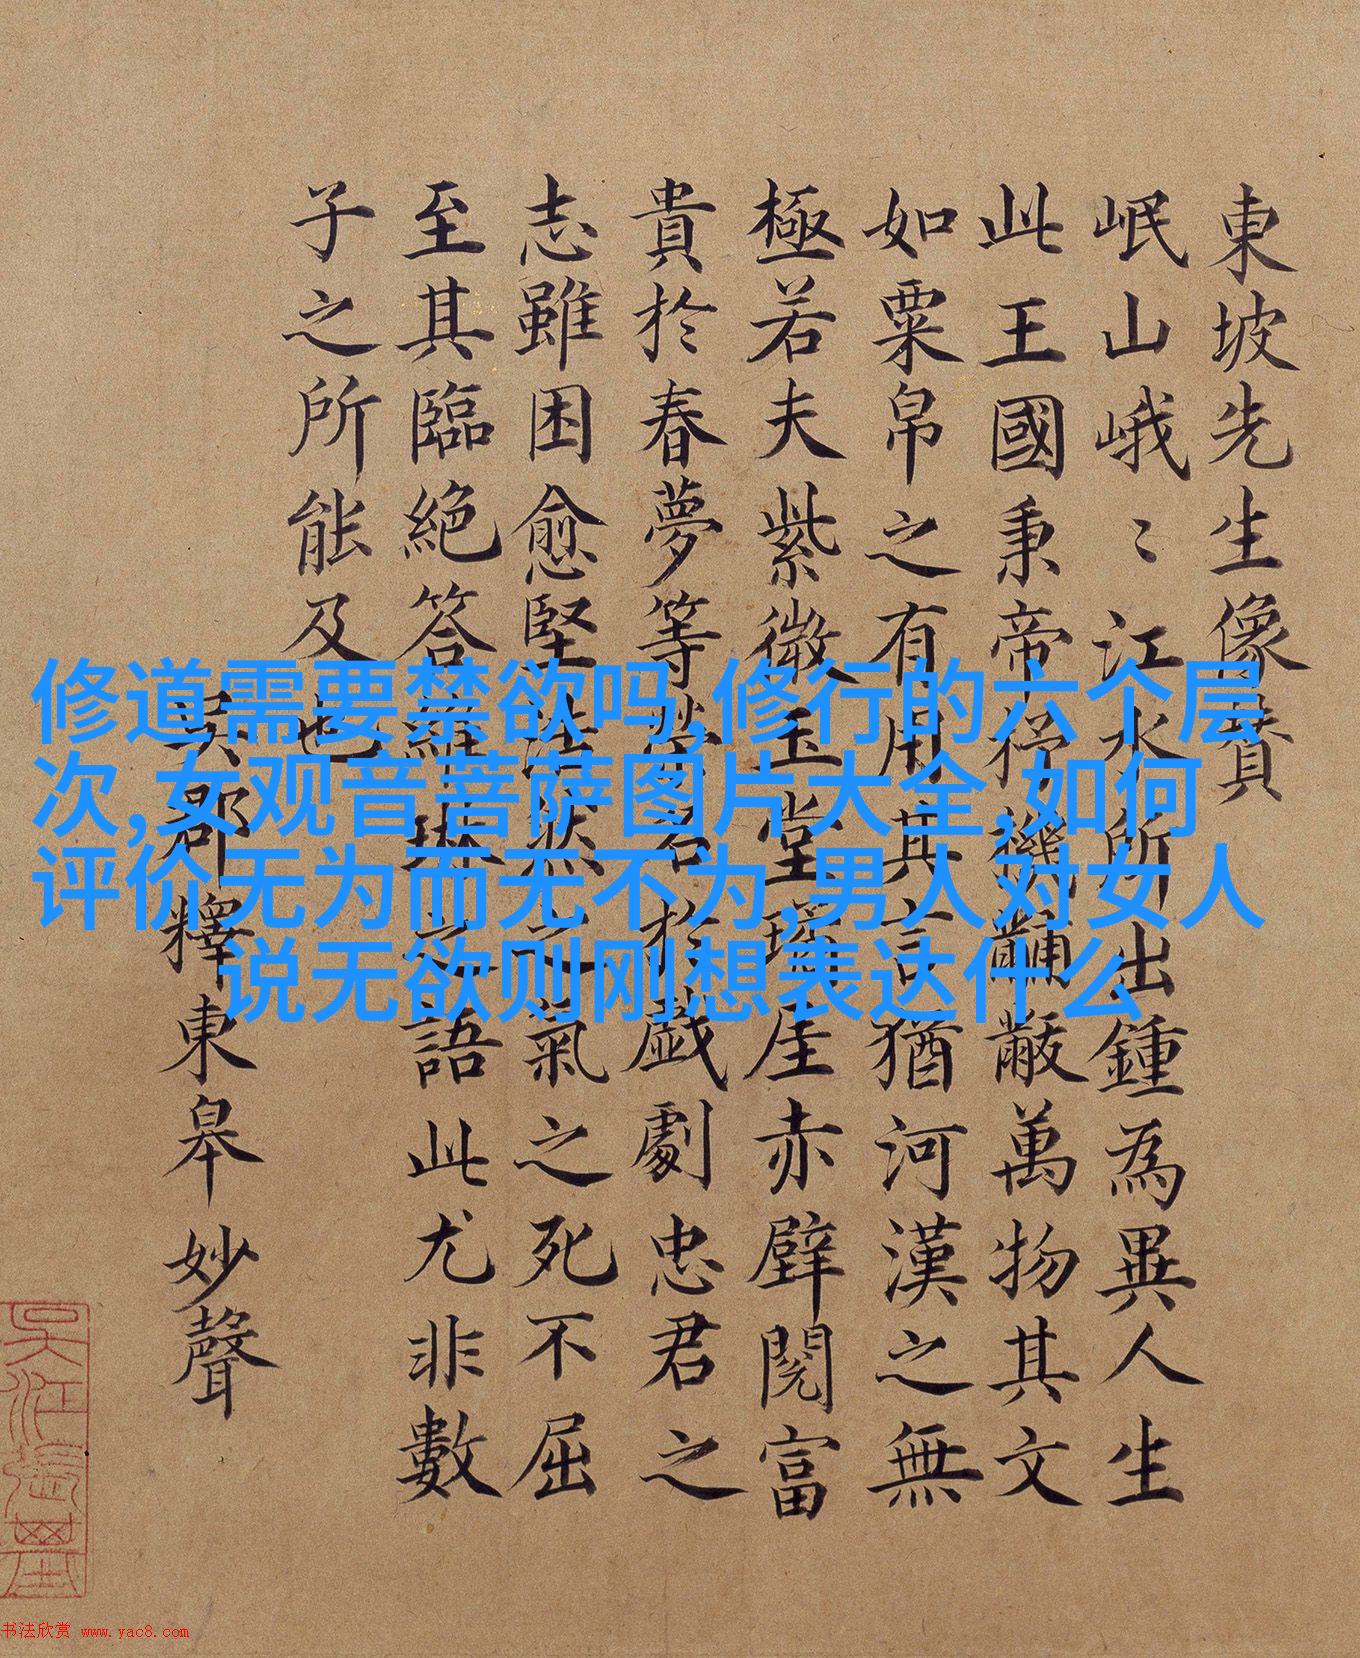 東坡先生像贊
岷山峨〻江水所出鍾為異人生
此王國秉帝杼機黼黻萬物其文
如粟帛之有用其言猶河漢之無
極若夫紫微玉堂瓊厓赤壁閱富
貴於春夢等榮名於戲劇忠君之
志雖困愈堅浩然之氣之死不屈
至其臨絕答維琳之語此尤非數
子之所能及也
吳郡釋東皋妙聲
修道需要禁欲吗,修行的六个层
次,女观音菩萨图片大全,如何
评价无为而无不为,男人对女人
说无欲则刚想表达什么
书法欣赏 www.yac8.com